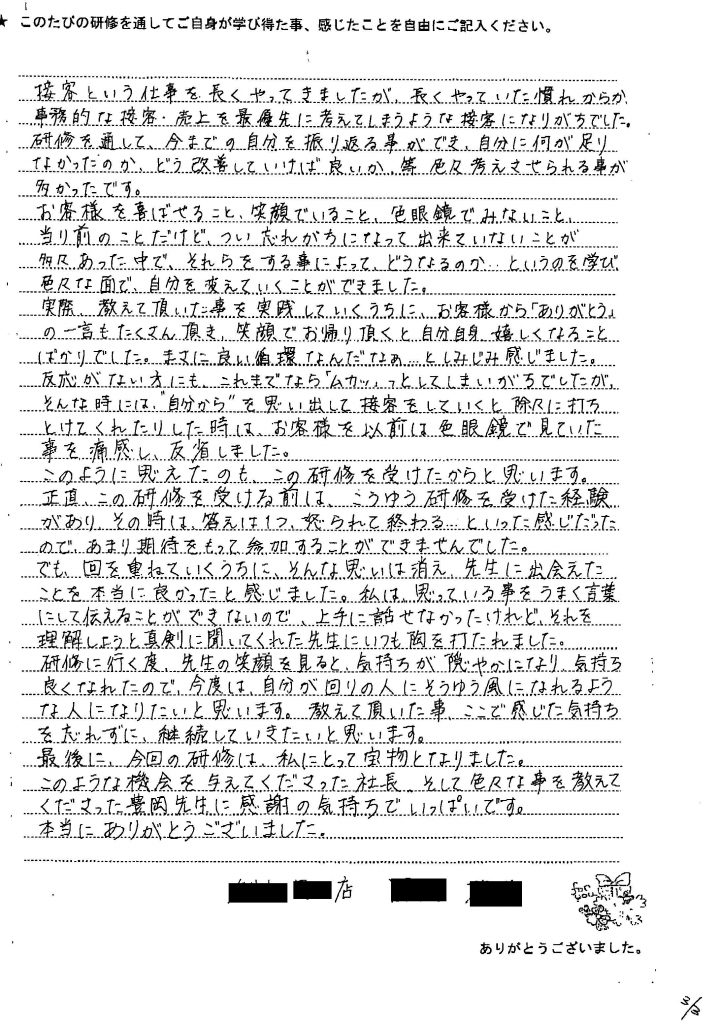 ★ このたびの研修を通してご自身が学び得た事、感じたことを自由にご記入ください。
接客という仕事を長くやってきましたが、長くやっていた慣れからか
事務的な接客・売上を最優先に考えてしまうような接客になりがちでした。
研修を通して、今までの自分を振り返る事ができ、自分に何が足り
なかったのか、どう改善していけば良いか、等 色々考えさせられる事が
多かったです。
お客様を喜ばせること、笑顔でいること、色眼鏡でみないこと、
当り前のことだけど、つい忘れがちになって出来ていないことが
多々あった中で、それらをする事によって、どうなるのか…というのを学び、
色々な面で、自分を変えていくことができました。
実際、教えて頂いた事を実践していくうちに、お客様から「ありがとう」
の一言もたくさん頂き、笑顔でお帰り頂くと自分自身 嬉しくなること
ばかりでした。まさに良い循環なんだなぁ…としみじみ感じました。
反応がない方にも、これまでなら「ムカッ」っとしてしまいがちでしたが、
そんな時には、"自分から"を思い出して接客をしていくと 除々に打ち
とけてくれたりした時は、お客様を以前は色眼鏡で見ていた
事を痛感し、反省しました。
このように思えたのも、この研修を受けたからと思います。
正直、この研修を受ける前は、こうゆう研修を受けた経験
があり、その時は、答えは1つ、怒られて終わる…といった感じだった
ので、あまり期待をもって参加することができませんでした。
でも、回を重ねていくうちに、そんな思いは消え、先生に出会えた
ことを本当に良かったと感じました。私は、思っている事をうまく言葉
にして伝えることができないので、上手に話せなかったけれど、それを
理解しようと真剣に聞いてくれた先生にいつも胸を打たれました。
研修に行く度、先生の笑顔を見ると、気持ちが 穏やかになり、気持ち
良くなれたので、今度は、自分が回りの人にそうゆう風になれるよう
な人になりたいと思います。教えて頂いた事、ここで感じた気持ち
を忘れずに、継続していきたいと思います。
最後に、今回の研修は、私にとって宝物となりました。
このような機会を与えてくださった社長、そして色々な事を教えて
くださった豊岡先生に感謝の気持ちでいっぱいです。
本当にありがとうございました。
店
for you
ありがとうございました。